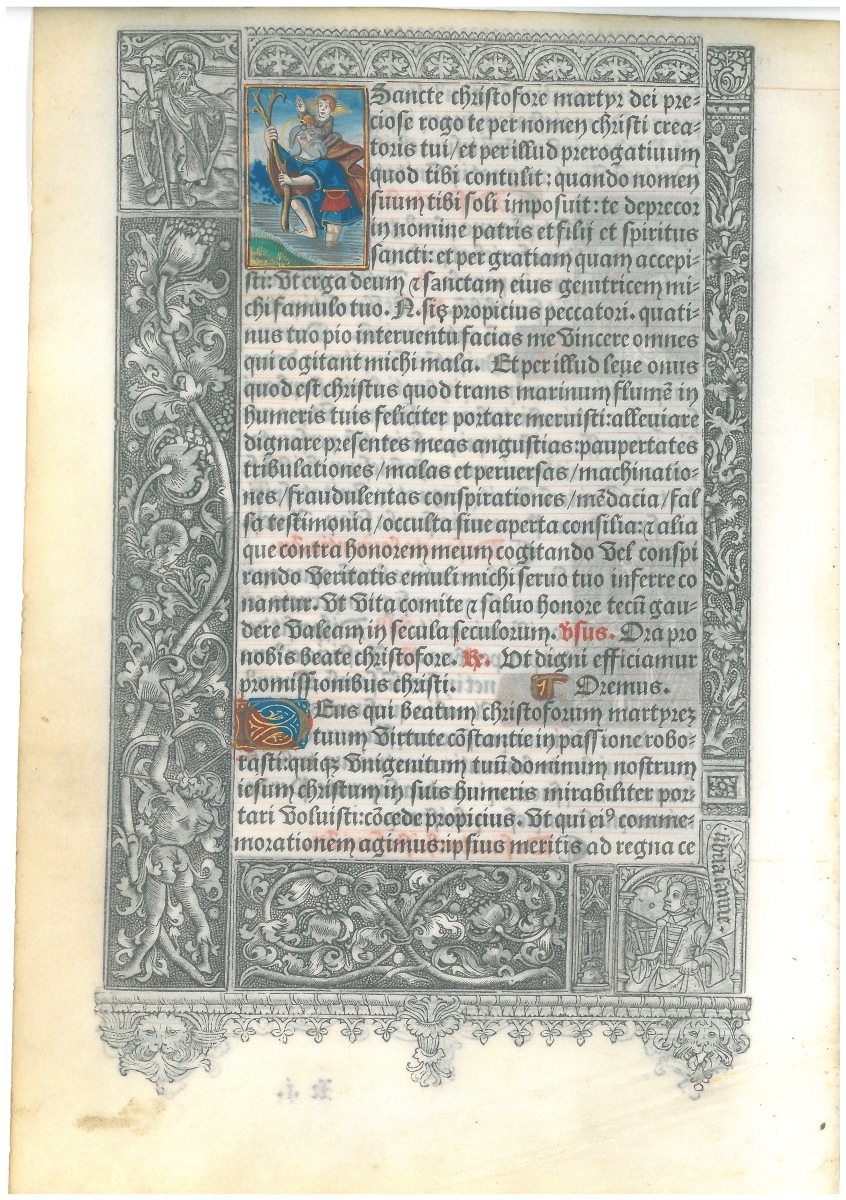 Sancte christofore martyr dei pre⸗
ciose rogo te per nomen christi crea⸗
toris tui/et per illud prerogatiuum
quod tibi contulit: quando nomen
suum tibi soli imposuit: te deprecor
in nomine patris et filij et spiritus
sancti: et per gratiam quam accepi⸗
sti: Vt erga deum ⁊ sanctam eius genitricem mi⸗
chi famulo tuo. N. sis propicius peccatori. quati⸗
nus tuo pio interuentu facias me Vincere omnes
qui cogitant michi mala. Et per illud leue onus
quod est christus quod trans marinum flumē in
humeris tuis feliciter portare meruisti: alleuiare
dignare presentes meas angustias: paupertates
tribulationes/malas et peruersas/machinatio⸗
nes/fraudulentas conspirationes/mēdacia/fal
sa testimonia/occulta siue aperta consilia: ⁊ alia
que contra honorem meum cogitando Vel conspi
rando Veritatis emuli michi seruo tuo inferre co
nantur. Vt Vita comite ⁊ saluo honore tecū gau⸗
dere Valeam in secula seculorum. Vsus. Ora pro
nobis beate christofore. ℟. Vt digni efficiamur
promissionibus christi. Oremus.
DEus qui beatum christoforum martyrez
tuum Virtute cōstantie in passione robo⸗
rasti: quiqꝫ Vnigenitum tuū dominum nostrum
iesum christum in suis humeris mirabiliter por⸗
tari Voluisti: cōcede propicius. Vt qui eiꝰ comme⸗
morationem agimus: ipsius meritis ad regna ce